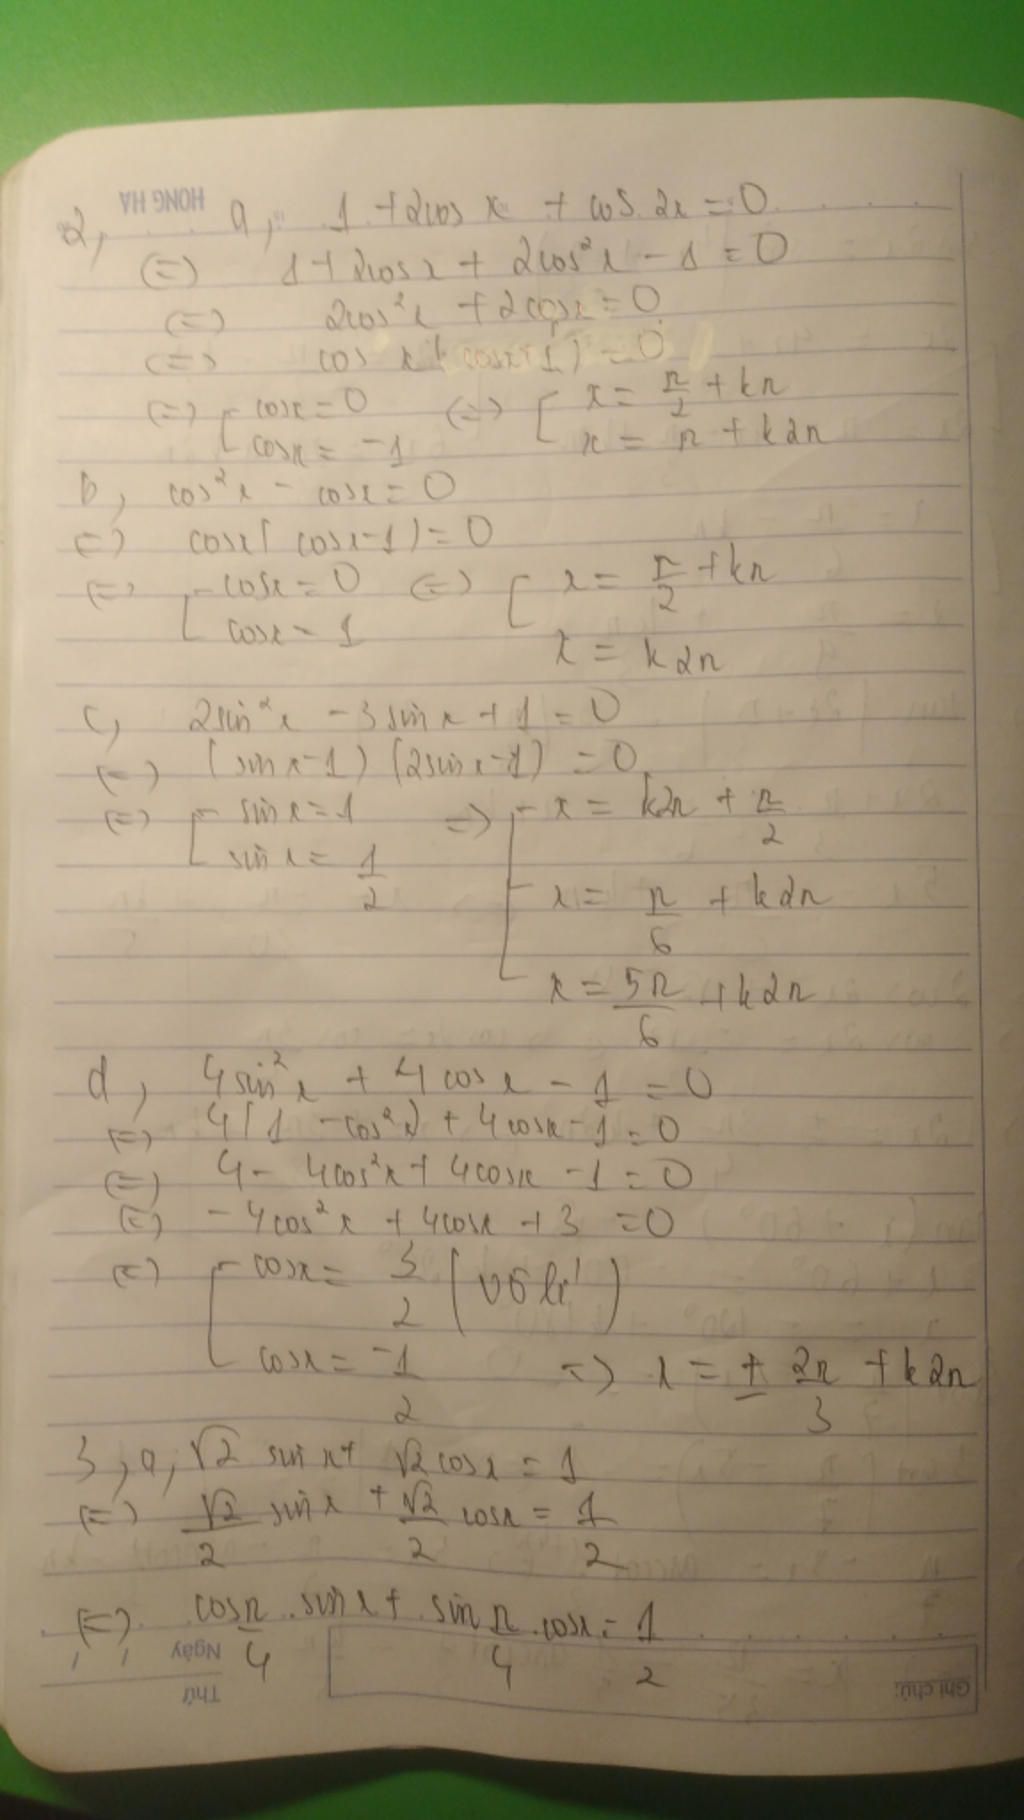 HONG HA
2, a, 1 + 2cos x + cos 2x = 0
(=) 1 + 2cos x + 2cos²x - 1 = 0
(=) 2cos²x + 2cosx = 0
(=) cos x (cosx+1) = 0
(=) [ cosx = 0 (=) [ x = π/2 + kπ
cosx = -1 x = π + k2π
b, cos²x - cosx = 0
(=) cosx( cosx-1) = 0
(=) [ cosx = 0 (=) [ x = π/2 + kπ
cosx = 1
x = k2π
c, 2sin²x - 3sin x + 1 = 0
(=) (sin x-1) (2sin x-1) = 0
(=) [ sin x = 1 => [ x = k2π + π/2
sin x = 1/2
x = π/6 + k2π
x = 5π/6 + k2π
d, 4sin²x + 4cos x - 1 = 0
(=) 4(1 - cos²x) + 4cosx - 1 = 0
(=) 4 - 4cos²x + 4cosx - 1 = 0
(=) -4cos²x + 4cosx + 3 = 0
(=) [ cosx = 3/2 (vô lí)
cosx = -1/2 => x = ± 2π/3 + k2π
3, a, √2 sin x + √2 cosx = 1
(=) √2/2 sin x + √2/2 cosx = 1/2
(=) cos π/4 . sin x + sin π/4 . cosx = 1/2
Ngày
Thứ
Ghi chú: